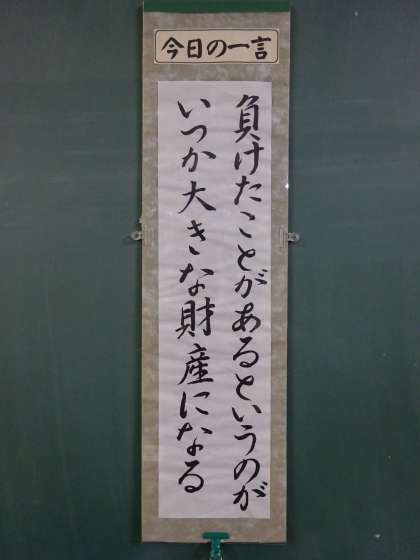 今日の一言
負けたことがあるというのが
いつか大きな財産になる